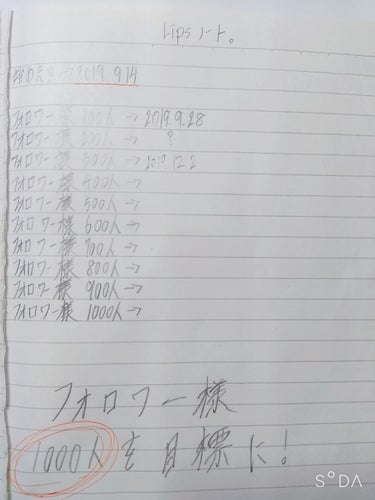 Lipsノート。
始めた日→2019.9.14
フォロワー様 100人→2019.9.28
フォロワー様 200人→ ?
フォロワー様 300人→2019.12.2
フォロワー様 400人→
フォロワー様 500人→
フォロワー様 600人→
フォロワー様 700人→
フォロワー様 800人→
フォロワー様 900人→
フォロワー様 1000人→
フォロワー様
1000人を目標に!
SODA